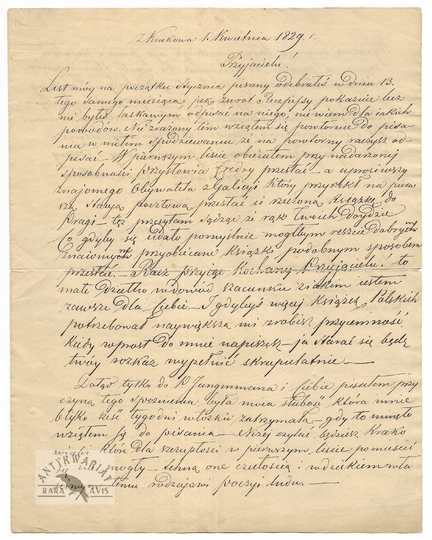 z Krakowa 1. Kwietnia 1829. r.
Przyjacielu!
List mój na początku Stycznia pisany odebrałeś w dniu 13.
tego samego miesiąca, jak zwrot Recepisy pokazuie lecz
nie byłeś łaskawym odpisać na niego, nie wiem dla jakich
powodów. Nie zrażony tem wziąłem się powtórnie do pisa-
nia w miłem spodziewaniu że na powtórny raczysz od-
pisać. W pierwszym liście obiecałem przy nadarzonej
sposobności Przysłowia Fredry przesłać a uprosiwszy
znajomego Obywatela z Galicyi który przyrzekł na pierw-
szą Stacyą pocztową przesłać i rzeczoną książkę do
Pragi — tę przesyłam sądząc że rąk Twoich Doydzie
Co gdyby się udało pomyślnie mógłbym resztę Dobrych
przyobiecane książki podobnym sposobem
przesłać. Racz przyjąć Kochany Przyjacielu! to
małe Dziełko w dowód szacunku z iakim iestem
zawsze Dla Ciebie. Gdybyś więcej książek Polskich
potrzebował największą mi zrobisz przyjemność
kiedy wprost Do mnie napiszesz — ja starał się będę
twój rozkaz wypełnić skrupulatnie. —
tylko do P. Jungmanna i Ciebie pisałem przy
czyną tego spóźnienia była moia słabość która mnie
blisko sześć tygodni w łóżku zatrzymała — gdy to minęło
wziąłem się do pisania. — czytać będziesz Krako
które Dla szczupłości w pierwszym liście pomieścić
mogły — one czułością i wdziękiem
rodzajowi poezyi ludu. —
ANTYKWARIAT
RARA AVIS